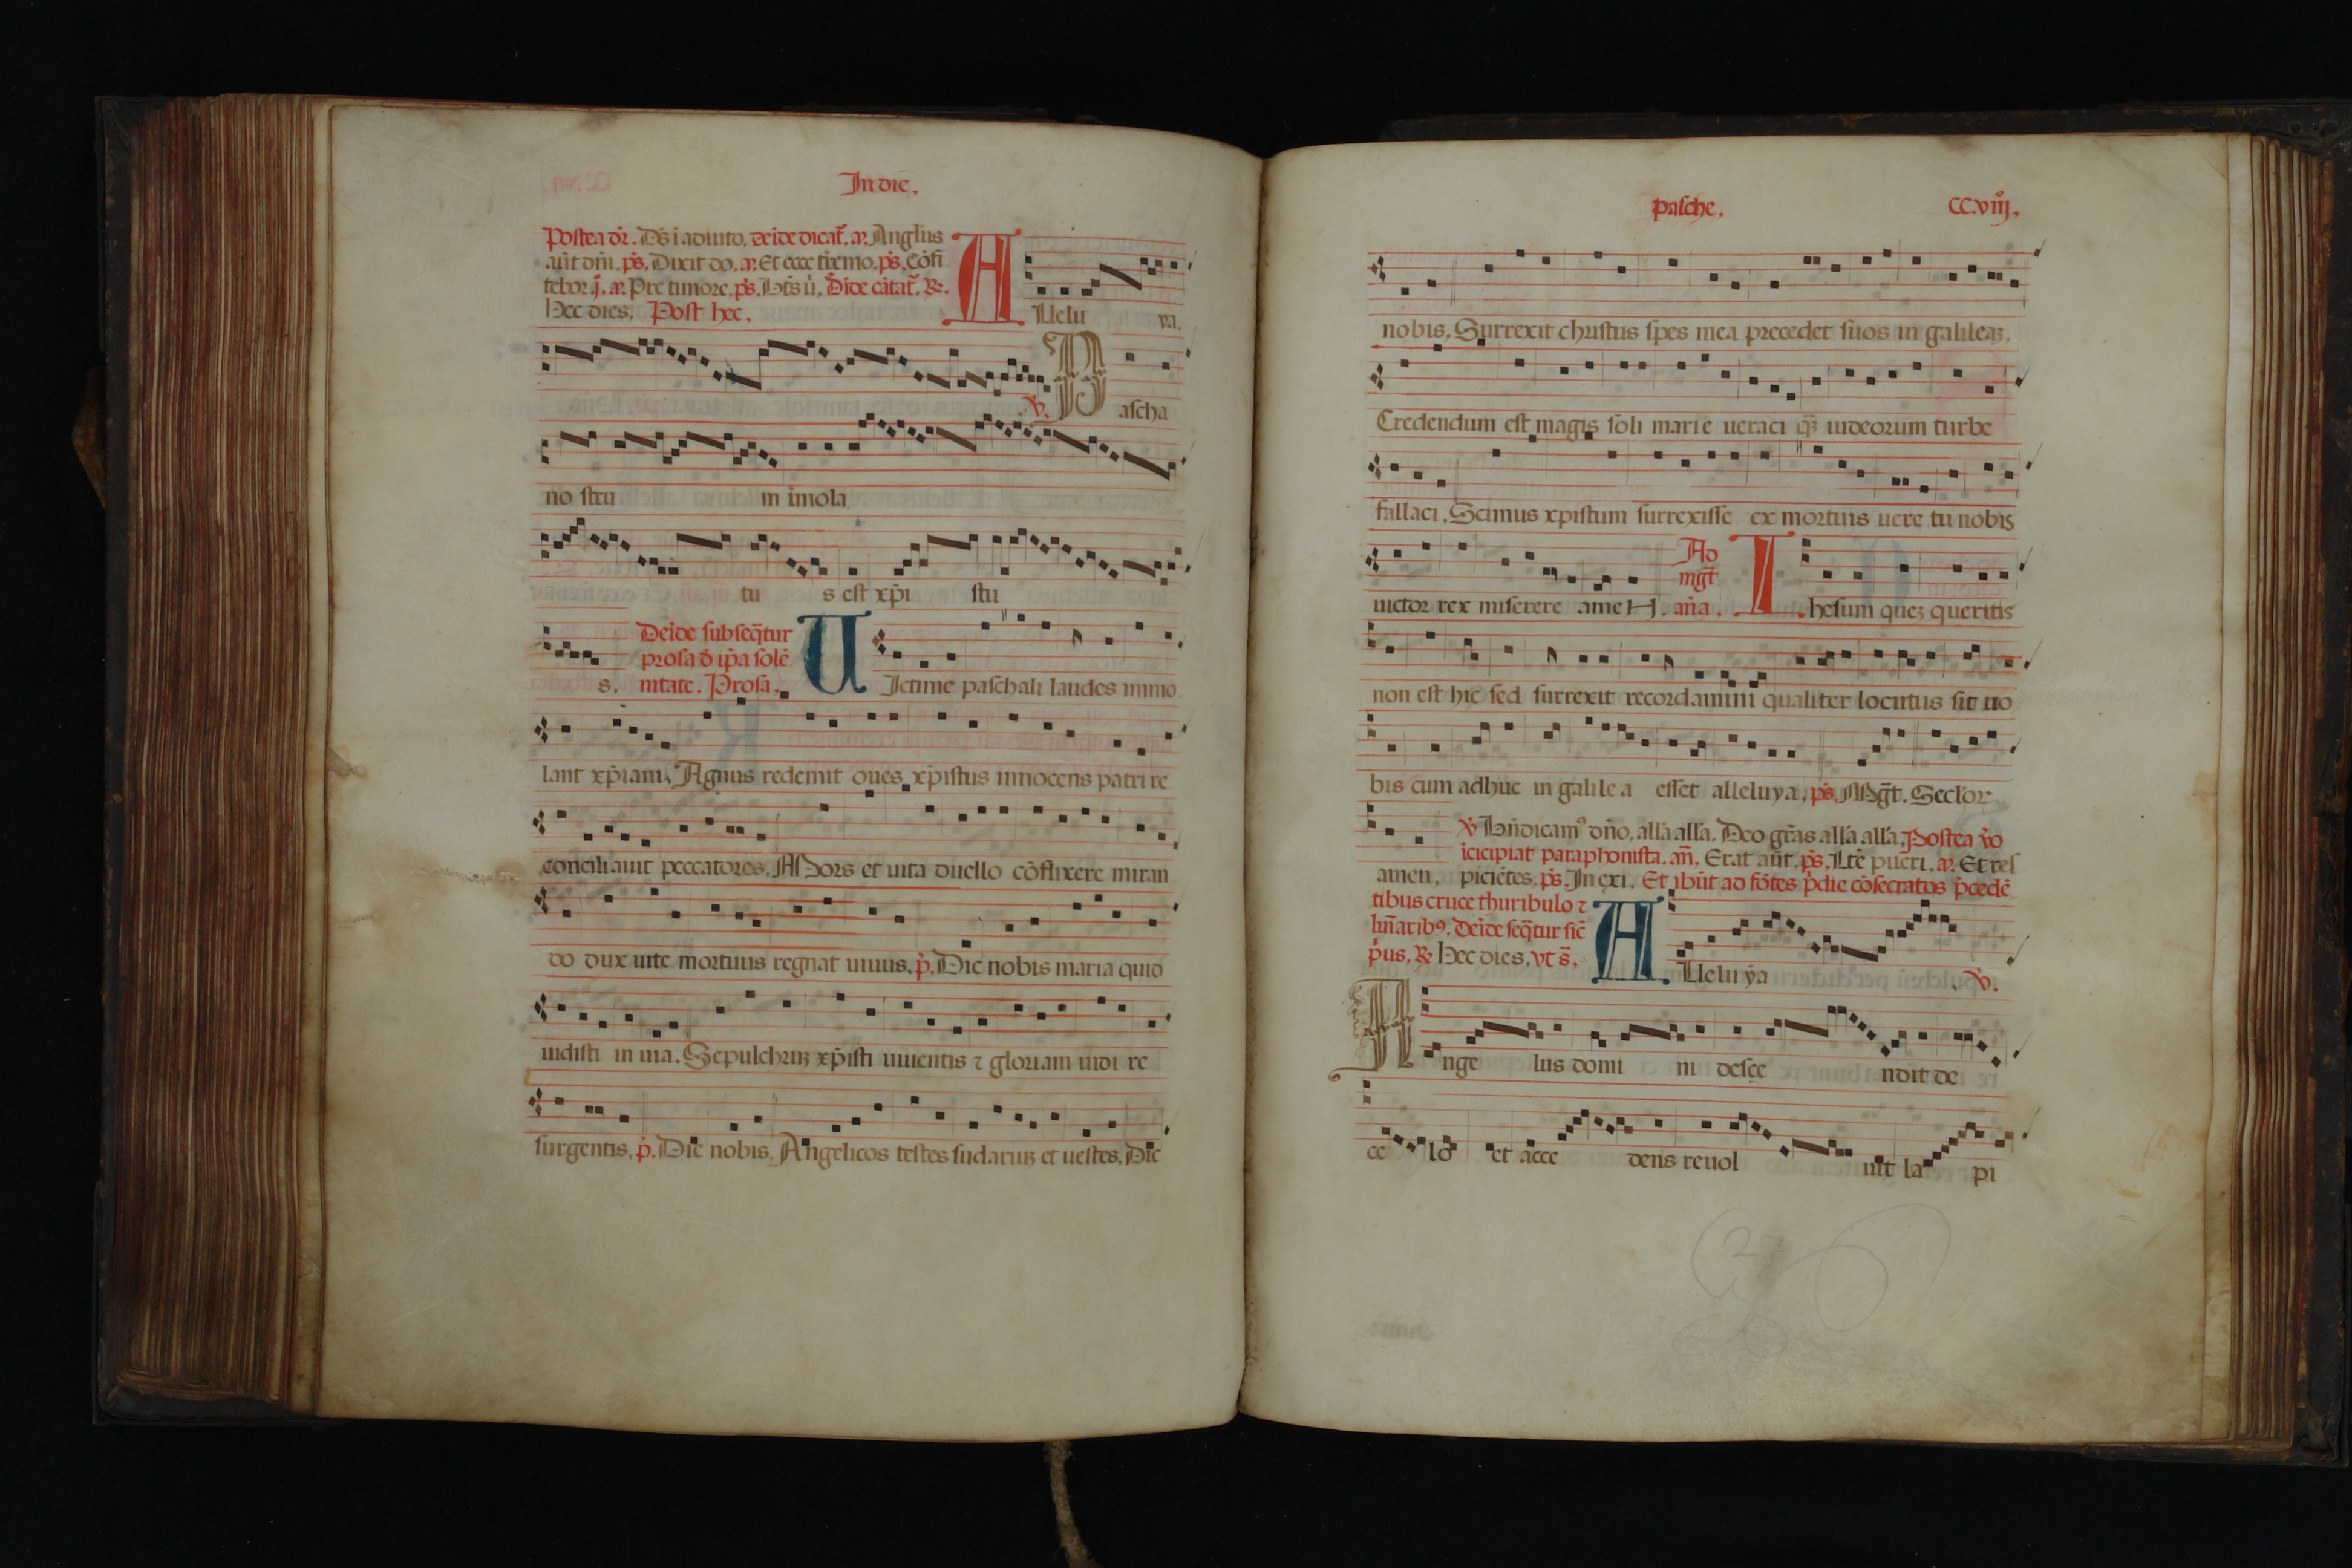 In die.
Postea dr̄. Ds̄ ī adiuto. deīde dicat̄. a. Anglus
aūt dn̄i. ps̄. Dixit do. a. Et ecce t̄remo. ps̄. Cōfi
tebor. j. a. Pre timore. ps̄. Bt̄s ū. d̄ide cātat̄. R.
Hec dies. Post hec. Allelu ya.
V. Pascha
no stru m imola
tu s est xp̄i stu
s. Deīde subseq̄tur
prosa d̄ ip̄a solē
nitate. Prosa. UIctime paschali laudes immo
lant xp̄iani. Agnus redemit oues xp̄istus innocens patri re
conciliauit peccatores. Mors et uita duello cōflixere miran
do dux uite mortuus regnat uiuus. p̄. Dic nobis maria quid
uidisti in uia. Sepulchruꝫ xp̄isti uiuentis ⁊ gloriam uidi re
surgentis. p̄. Dic nobis. Angelicos testes sudariuꝫ et uestes. Dic
pasche. CC.viiȷ.
nobis. Surrexit christus spes mea precedet suos in galileaꝫ.
Credendum est magis soli marie ueraci q̄ꝫ iudeorum turbe
fallaci. Scimus xpistum surrexisse ex mortuis uere tu nobis
uictor rex miserere amen. Ad
mgt̄
an̄a. Ihesum queꝫ queritis
non est hic sed surrexit recordamini qualiter locutus sit uo
bis cum adhuc in galilea esset alleluya. ps̄. Mgt̄. Seclor
V Bn̄dicam⁹ dn̄o, alla alla. Deo gr̄as alla. alla. Postea v̄o
īcipiat paraphonista. an̄. Erat aūt. ps̄. Lte pueri. a. Et res
amen, piciētes. ps̄. In exi. Et ibūt ad fōtes p̄die cōsecratos p̄cedē
tibus cruce thuribulo ⁊
lūnarib⁹. deīde seq̄tur sic̄
p̄us. R Hec dies. vt s̄. Alleluya V.
Ange lus domi ni desce ndit de
ce lo et acce dens reuol uit la pi